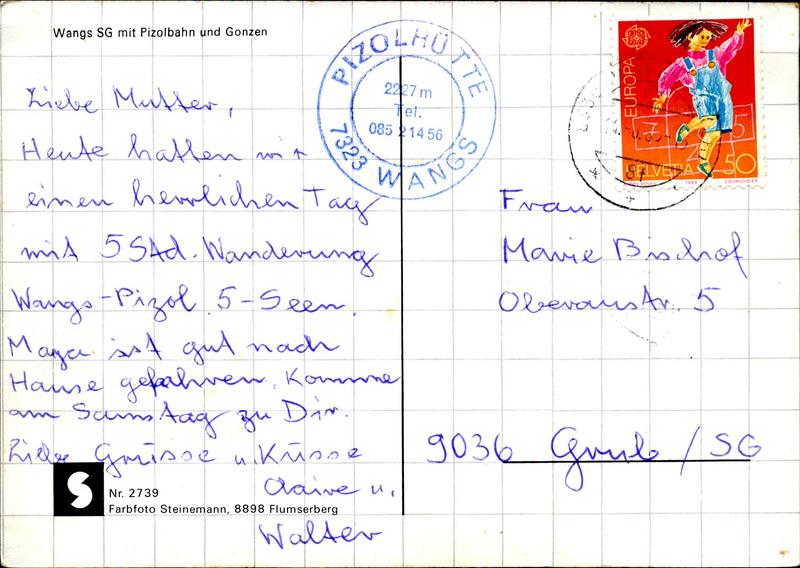 Wangs SG mit Pizolbahn und Gonzen
PIZOLHÜTTE
2227 m
Tel.
085 2 14 56
7323 WANGS
EUROPA
HELVETIA 50
1989 COURVOISIER
Liebe Mutter,
Heute hatten wir
einen herrlichen Tag
mit 5 Std. Wanderung
Wangs-Pizol 5-Seen.
Maya ist gut nach
Hause gefahren. Komme
am Samstag zu Dir.
Liebe Grüsse u. Küsse
Claire u.
Walter
Frau
Marie Bischof
Oberaustr. 5
9036 Grub / SG
S
Nr. 2739
Farbfoto Steinemann, 8898 Flumserberg